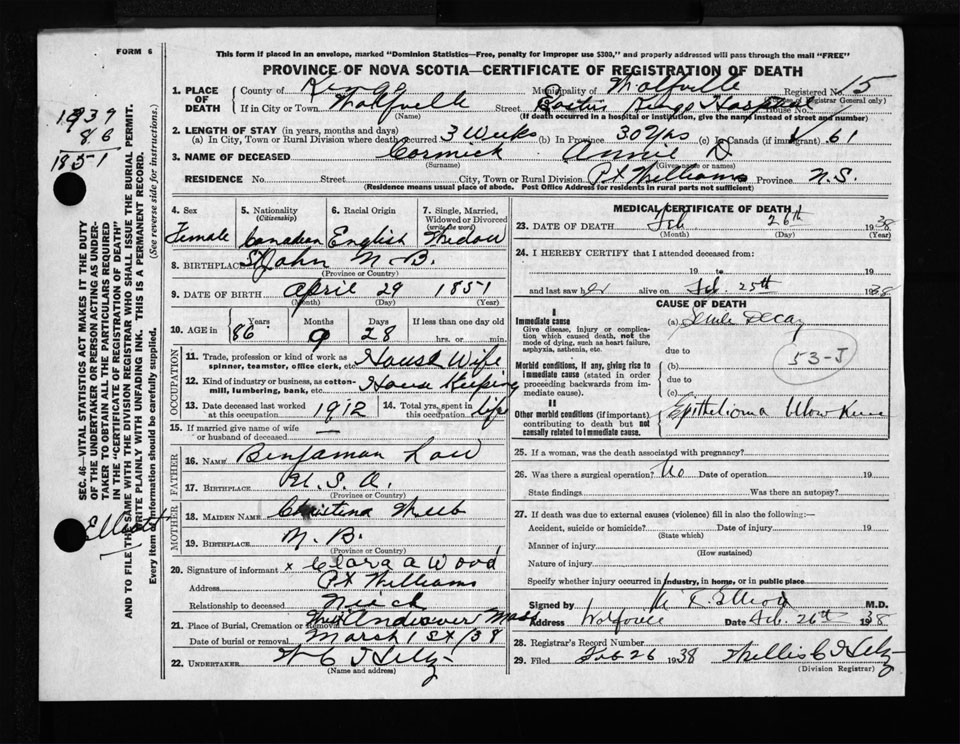 FORM 6
This form if placed in an envelope, marked "Dominion Statistics—Free, penalty for improper use $300," and properly addressed will pass through the mail "FREE"
PROVINCE OF NOVA SCOTIA—CERTIFICATE OF REGISTRATION OF DEATH
1. PLACE OF DEATH County of Kings Municipality of Wolfville Registered No. 15
(For use of Registrar General only)
If in City or Town Wolfville Street Kings Hospital House No.
(Name) (If death occurred in a hospital or institution, give the name instead of street and number)
2. LENGTH OF STAY (in years, months and days)
(a) In City, Town or Rural Division where death occurred 3 Weeks (b) In Province 30 Yrs (c) In Canada (if immigrant) 61
3. NAME OF DECEASED Cormick Annie D
(Surname) (Given name or names)
RESIDENCE No. Street City, Town or Rural Division Pt Williams Province N.S.
(Residence means usual place of abode. Post Office Address for residents in rural parts not sufficient)
4. Sex Female
5. Nationality (Citizenship) Canadian
6. Racial Origin English
7. Single, Married, Widowed or Divorced (write the word) Widow
8. BIRTHPLACE St John N.B.
(Province or Country)
9. DATE OF BIRTH April 29 1851
(Month) (Day) (Year)
10. AGE in Years Months Days If less than one day old
86 9 28 hrs. or min.
OCCUPATION
11. Trade, profession or kind of work as spinner, teamster, office clerk, etc. House Wife
12. Kind of industry or business, as cotton-mill, lumbering, bank, etc. House Keeping
13. Date deceased last worked at this occupation 1912
14. Total yrs. spent in this occupation life
15. If married give name of wife or husband of deceased
FATHER
16. NAME Benjaman Law
17. BIRTHPLACE U.S.A.
(Province or Country)
MOTHER
18. MAIDEN NAME Christina Webb
19. BIRTHPLACE N.B.
(Province or Country)
20. Signature of informant x Clara A Wood
Address Pt Williams
Relationship to deceased Niech
21. Place of Burial, Cremation or Removal Andover Mass
Date of burial or removal March 1st/38
22. UNDERTAKER
(Name and address)
MEDICAL CERTIFICATE OF DEATH
23. DATE OF DEATH Feb 26th 1938
(Month) (Day) (Year)
24. I HEREBY CERTIFY that I attended deceased from:
19 to 19
and last saw her alive on Feb. 25th 1938
CAUSE OF DEATH
I
Immediate cause (a) Senile Decay
Give disease, injury or complication which caused death, not the mode of dying, such as heart failure, asphyxia, asthenia, etc.
due to
53-J
Morbid conditions, if any, giving rise to immediate cause (stated in order proceeding backwards from immediate).
(b)
due to
(c)
II
Other morbid conditions (if important) contributing to death but not causally related to immediate cause.
Epithelioma
25. If a woman, was the death associated with pregnancy?
26. Was there a surgical operation? No Date of operation 19
State findings Was there an autopsy?
27. If death was due to external causes (violence) fill in also the following:—
Accident, suicide or homicide? Date of injury 19
(State which)
Manner of injury
(How sustained)
Nature of injury
Specify whether injury occurred in industry, in home, or in public place
Signed by Elliott M.D.
Address Wolfville Date Feb. 26th 1938
28. Registrar's Record Number
29. Filed Feb 26 1938
(Division Registrar)
1939
86
1851
Elliott
SEC. 46—VITAL STATISTICS ACT MAKES IT THE DUTY
OF THE UNDERTAKER OR PERSON ACTING AS UNDER-
TAKER TO OBTAIN ALL THE PARTICULARS REQUIRED
IN THE "CERTIFICATE OF REGISTRATION OF DEATH"
AND TO FILE THE SAME WITH THE DIVISION REGISTRAR WHO SHALL ISSUE THE BURIAL PERMIT.
WRITE PLAINLY WITH UNFADING INK. THIS IS A PERMANENT RECORD.
Every item of information should be carefully supplied. (See reverse side for instructions.)